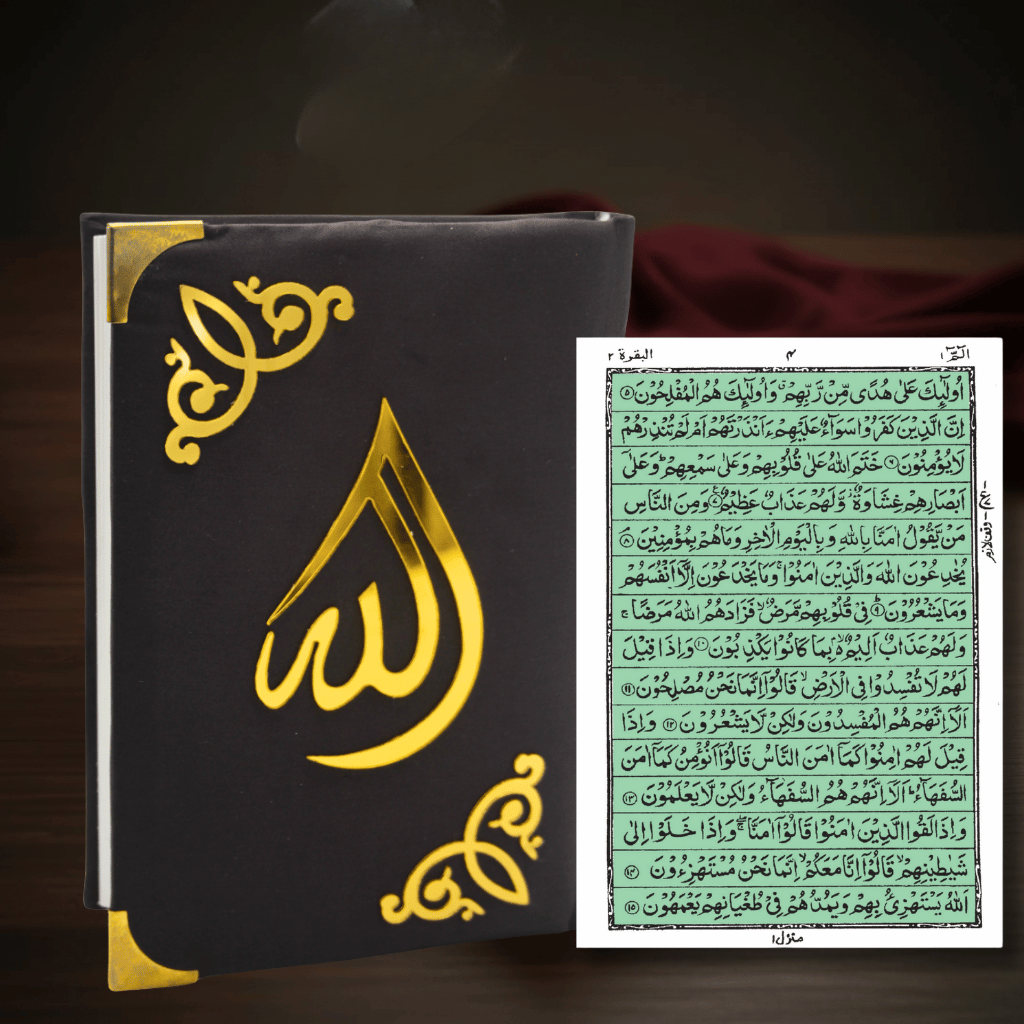 الله
البقرة ٢
٤
الٓمّٓ ١
اُولٰٓئِكَ عَلٰى هُدًى مِّنْ رَّبِّهِمْ ۙ وَاُولٰٓئِكَ هُمُ الْمُفْلِحُوْنَ ۝۵
اِنَّ الَّذِيْنَ كَفَرُوْا سَوَآءٌ عَلَيْهِمْ ءَاَنْذَرْتَهُمْ اَمْ لَمْ تُنْذِرْهُمْ
لَا يُؤْمِنُوْنَ ۝۶ خَتَمَ اللّٰهُ عَلٰى قُلُوْبِهِمْ وَعَلٰى سَمْعِهِمْ ؕ وَعَلٰٓى
اَبْصَارِهِمْ غِشَاوَةٌ ۫ وَّلَهُمْ عَذَابٌ عَظِيْمٌ ۝۷ وَمِنَ النَّاسِ
مَنْ يَّقُوْلُ اٰمَنَّا بِاللّٰهِ وَبِالْيَوْمِ الْاٰخِرِ وَمَا هُمْ بِمُؤْمِنِيْنَ ۝۸
يُخٰدِعُوْنَ اللّٰهَ وَالَّذِيْنَ اٰمَنُوْا ۚ وَمَا يَخْدَعُوْنَ اِلَّآ اَنْفُسَهُمْ
وَمَا يَشْعُرُوْنَ ۝۹ؕ فِيْ قُلُوْبِهِمْ مَّرَضٌ ۙ فَزَادَهُمُ اللّٰهُ مَرَضًا ۚ
وَلَهُمْ عَذَابٌ اَلِيْمٌ ۢ ۙ بِمَا كَانُوْا يَكْذِبُوْنَ ۝۱۰ وَاِذَا قِيْلَ
لَهُمْ لَا تُفْسِدُوْا فِي الْاَرْضِ ۙ قَالُوْٓا اِنَّمَا نَحْنُ مُصْلِحُوْنَ ۝۱۱
اَلَآ اِنَّهُمْ هُمُ الْمُفْسِدُوْنَ وَلٰكِنْ لَّا يَشْعُرُوْنَ ۝۱۲ وَاِذَا
قِيْلَ لَهُمْ اٰمِنُوْا كَمَآ اٰمَنَ النَّاسُ قَالُوْٓا اَنُؤْمِنُ كَمَآ اٰمَنَ
السُّفَهَآءُ ؕ اَلَآ اِنَّهُمْ هُمُ السُّفَهَآءُ وَلٰكِنْ لَّا يَعْلَمُوْنَ ۝۱۳
وَاِذَا لَقُوا الَّذِيْنَ اٰمَنُوْا قَالُوْٓا اٰمَنَّا ۖۚ وَاِذَا خَلَوْا اِلٰى
شَيٰطِيْنِهِمْ ۙ قَالُوْٓا اِنَّا مَعَكُمْ ۙ اِنَّمَا نَحْنُ مُسْتَهْزِءُوْنَ ۝۱۴
اَللّٰهُ يَسْتَهْزِئُ بِهِمْ وَيَمُدُّهُمْ فِيْ طُغْيَانِهِمْ يَعْمَهُوْنَ ۝۱۵
وقف لازم
منزل ١